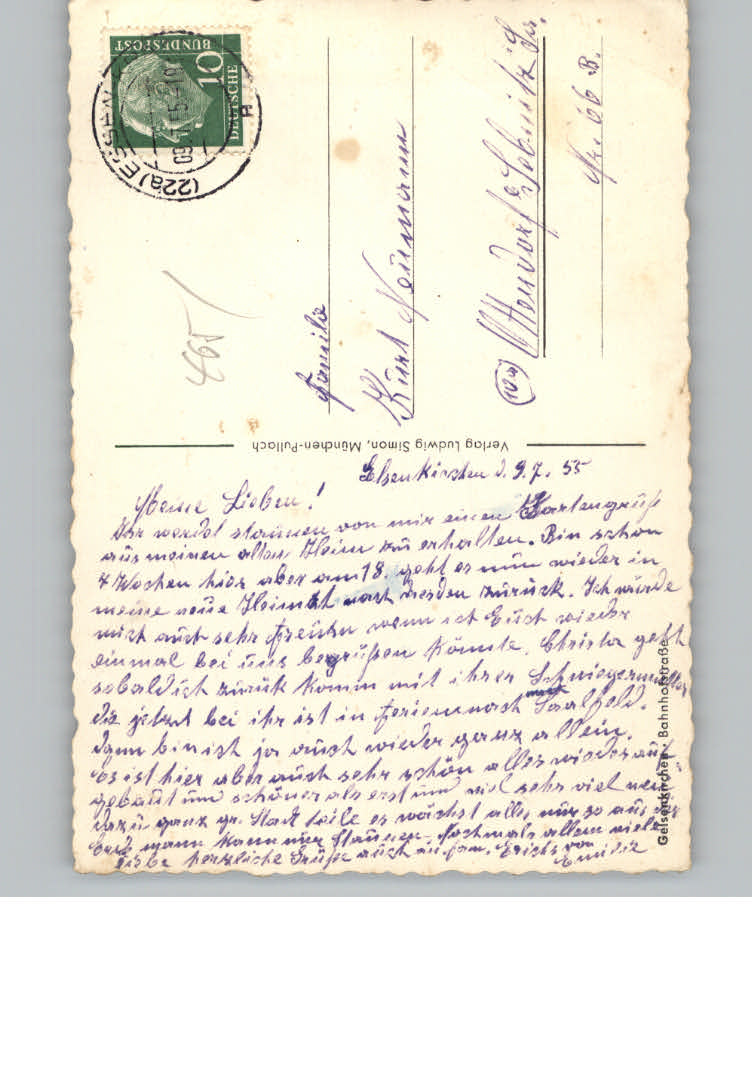 DEUTSCHE
BUNDESPOST
10
(22a) ESSEN
09.7.55
465
Familie
Kurt Neumann
(10a) Ottendorf b. Sebnitz Sa.
Nr. 66 B.
Verlag Ludwig Simon, München-Pullach
Gelsenkirchen Bahnhofstraße
Elsenkirchen d. 9.7.55
Meine Lieben!
Ihr werdet staunen von mir einen Kartengruß
aus meinen alten Heim zu erhalten. Bin schon
4 Wochen hier aber am 18. geht es nun wieder in
meine neue Heimat nach Dresden zurück. Ich würde
mich auch sehr freuen wenn ich Euch wieder
einmal bei uns begrüßen könnte. Christa geht
sobald ich zurück komm mit ihrer Schwiegermutter
die jetzt bei ihr ist in Ferien nach Saalfeld.
Dann bin ich ja auch wieder ganz allein.
Es ist hier aber auch sehr schön alles wieder auf-
gebaut und schöner als erst und viel sehr viel neu
dazu ganz gr. Stadt teile es wächst alles nur so aus der
Erd mann kann nur staunen. Nochmals allen viele
liebe herzliche Grüße auch an Fam. Erichs von
Emilie